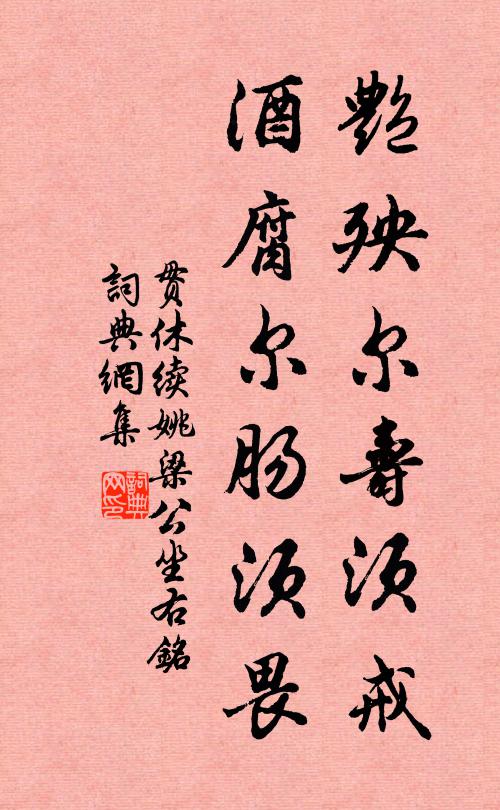 艷殃尔壽須戒
酒腐尔肠須畏
贯休续姚梁公坐右銘
詞典網集
詞典网印